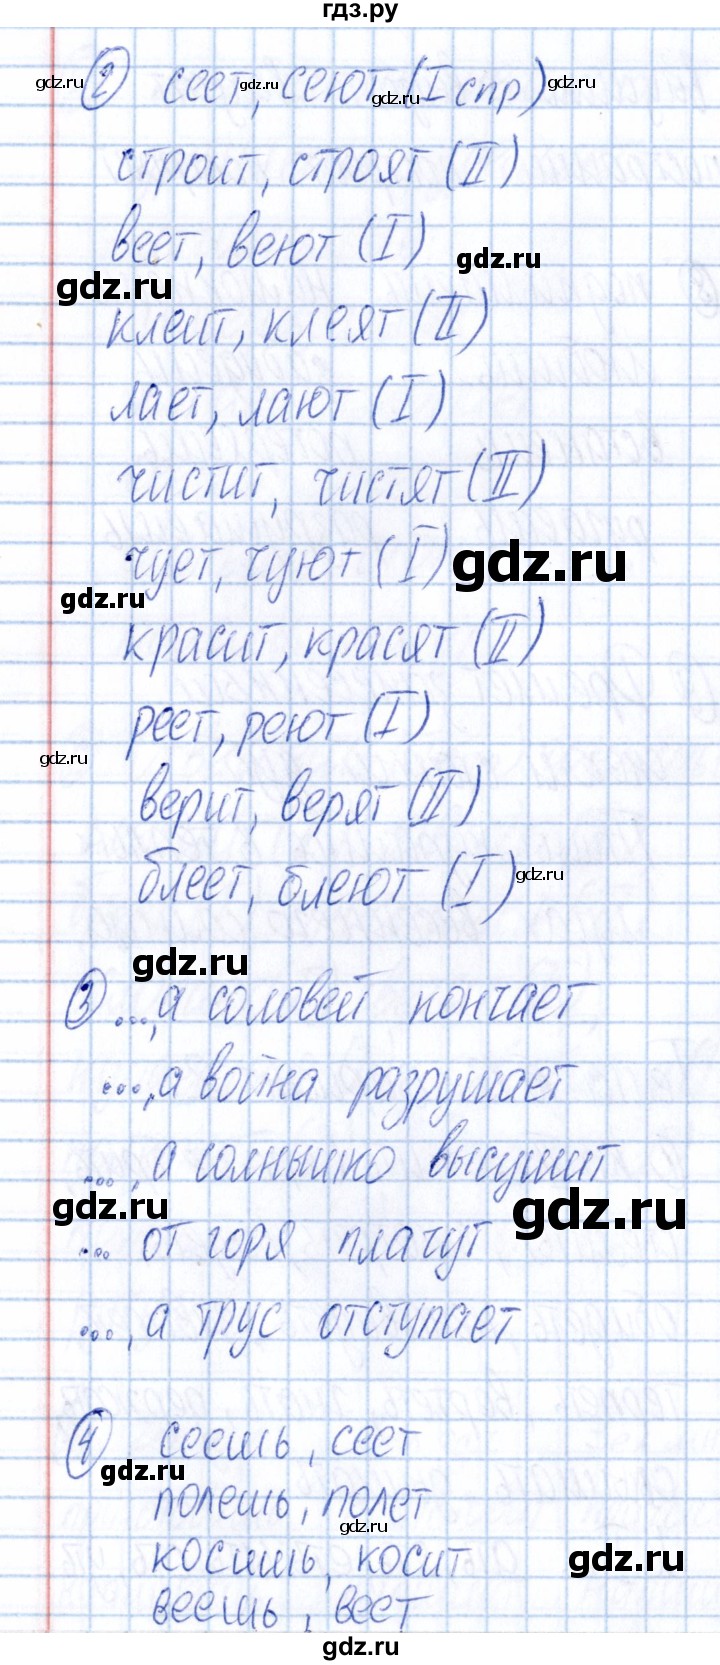 гдз.ру
gdz.ru gdz.ru gdz.ru gdz.ru
2 сеет, сеют (I спр)
строит, строят (II)
веет, веют (I)
gdz.ru
gdz.ru
клеит, клеят (II)
лает, лают (I)
чистит, чистят (II)
чует, чуют (I)
gdz.ru
gdz.ru
красит, красят (II)
реет, реют (I)
gdz.ru
верит, верят (II)
блеет, блеют (I)
gdz.ru
gdz.ru
3 ..., а соловей кончает
..., а война разрушает
..., а солнышко высушит
gdz.ru
gdz.ru
... от горя плачут
..., а трус отступает
4 сеешь, сеет
gdz.ru
полешь, полет
gdz.ru
косишь, косит
gdz.ru
веешь, веет
gdz.ru